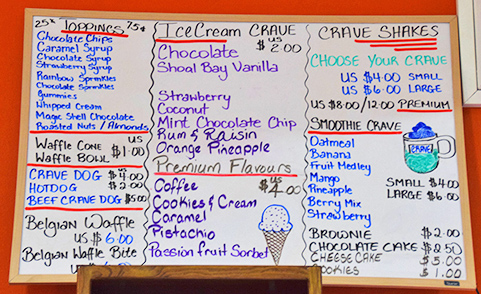 25¢ TOPPINGS 75¢
Chocolate Chips
Caramel Syrup
Chocolate Syrup
Strawberry Syrup
Rainbow Sprinkles
Chocolate Sprinkles
Gummies
Whipped Cream
Magic Shell Chocolate
Roasted Nuts / Almonds
Waffle Cone US
Waffle Bowl $1.00
CRAVE DOG US $4.00
HOTDOG $2.00
BEEF CRAVE DOG $5.00
Belgian Waffle
US $6.00
Belgian Waffle Bite
US
Ice Cream CRAVE
Chocolate US $2.00
Shoal Bay Vanilla
Strawberry
Coconut
Mint Chocolate Chip
Rum & Raisin
Orange Pineapple
Premium Flavours
Coffee US $4.00
Cookies & Cream
Caramel
Pistachio
Passion fruit Sorbet
CRAVE SHAKES
CHOOSE YOUR CRAVE
US $4.00 SMALL
US $6.00 LARGE
US $8.00/12.00 PREMIUM
SMOOTHIE CRAVE
Oatmeal
Banana
Fruit Medley
Mango
Pineapple
Berry Mix
Strawberry
CRAVE
US
SMALL $4.00
LARGE $6.00
BROWNIE $2.00
CHOCOLATE CAKE $2.50
CHEESE CAKE $5.00
COOKIES $1.00